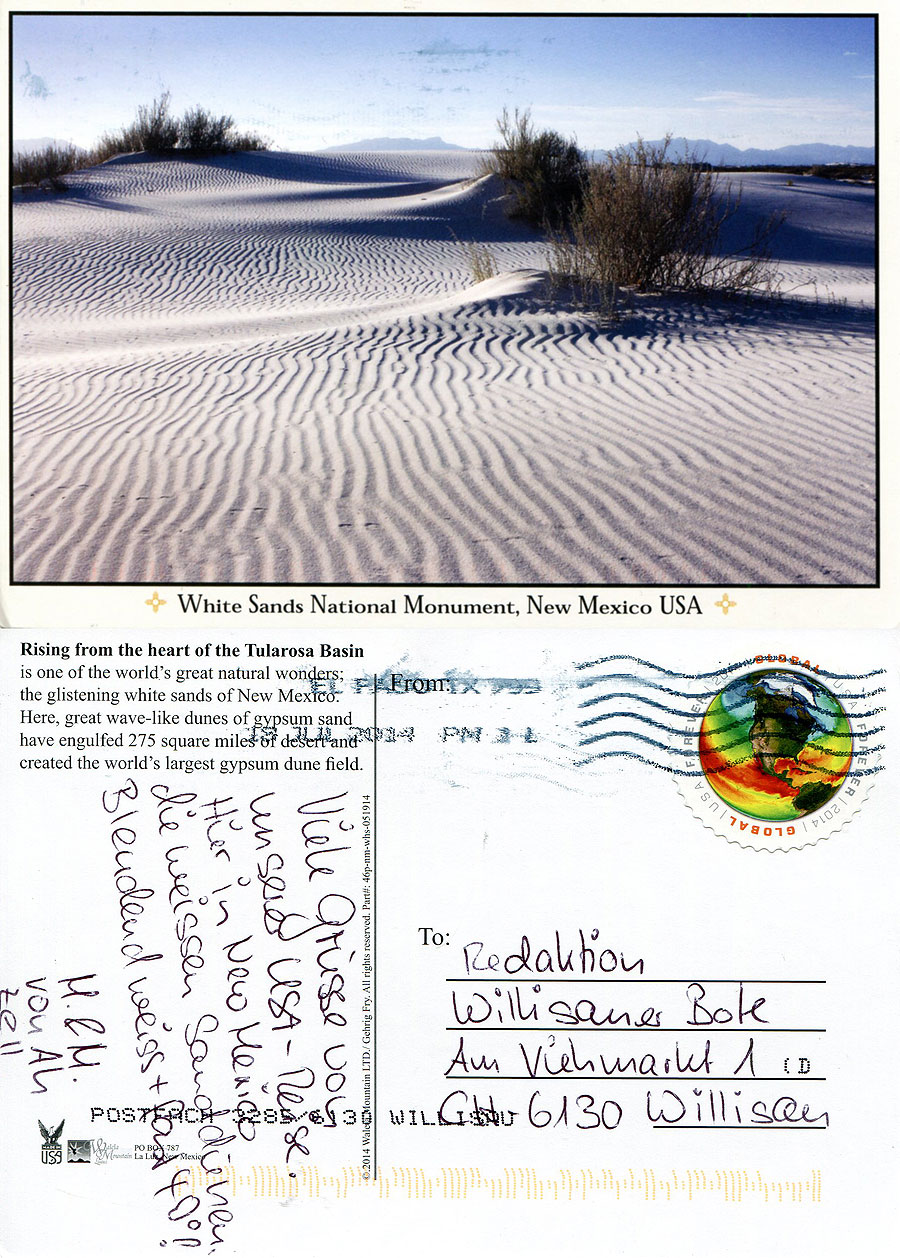 White Sands National Monument, New Mexico USA
Rising from the heart of the Tularosa Basin
is one of the world's great natural wonders;
the glistening white sands of New Mexico.
Here, great wave-like dunes of gypsum sand
have engulfed 275 square miles of desert and
created the world's largest gypsum dune field.
From:
EL PASO TX 799
18 JUL 2014 PM 3 L
GLOBAL | USA FOREVER | 2014 | GLOBAL | USA FOREVER | 2014
Viele Grüsse von
unserer USA-Reise.
Hier in New Mexico
die weissen Sanddünen.
Blendend weiss + fast 40°!
H. & M.
von Ah
Zell
To:
Redaktion
Willisauer Bote
Am Viehmarkt 1
CH 6130 Willisau
POSTFACH 3285/6130 WILLISAU
MADE IN
USA
PO BOX 787
La Luz, New Mexico
©2014 Walela Mountain LTD./ Gehrig Fry. All rights reserved. Part#: 46p-nm-whs-051914